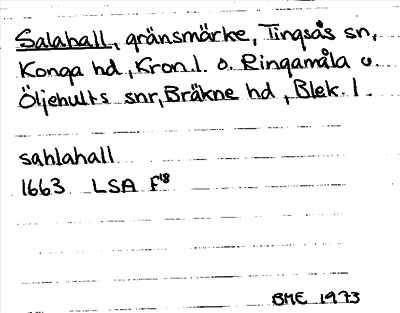 Salahall, gränsmärke, Tingsås sn,
Konga hd, Kron.l. o. Ringamåla o
Öljehults snr, Bräkne hd, Blek. l.
sahlahall
1663 LSA F18
BME 1973